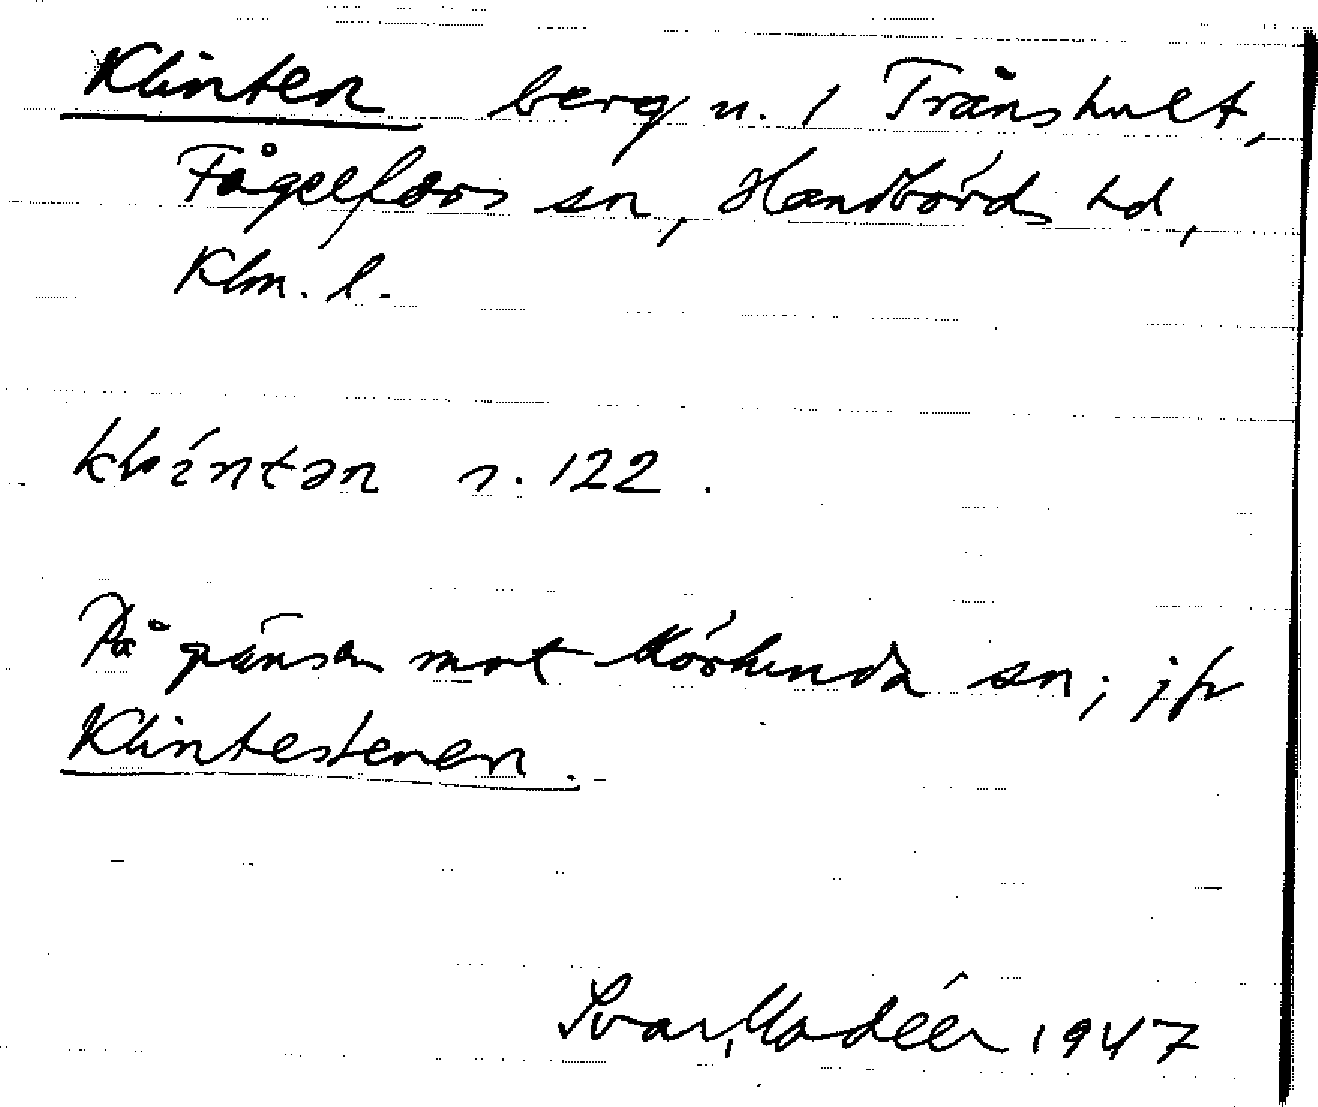 Klinten berg u. / Tränshult,
Fågelfors sn, Handbörds hd,
Klm. l.
klíntən s. 122.
På gränsen mot Mörlunda sn; jfr
Klintestenen.
Ivar Modéer 1947